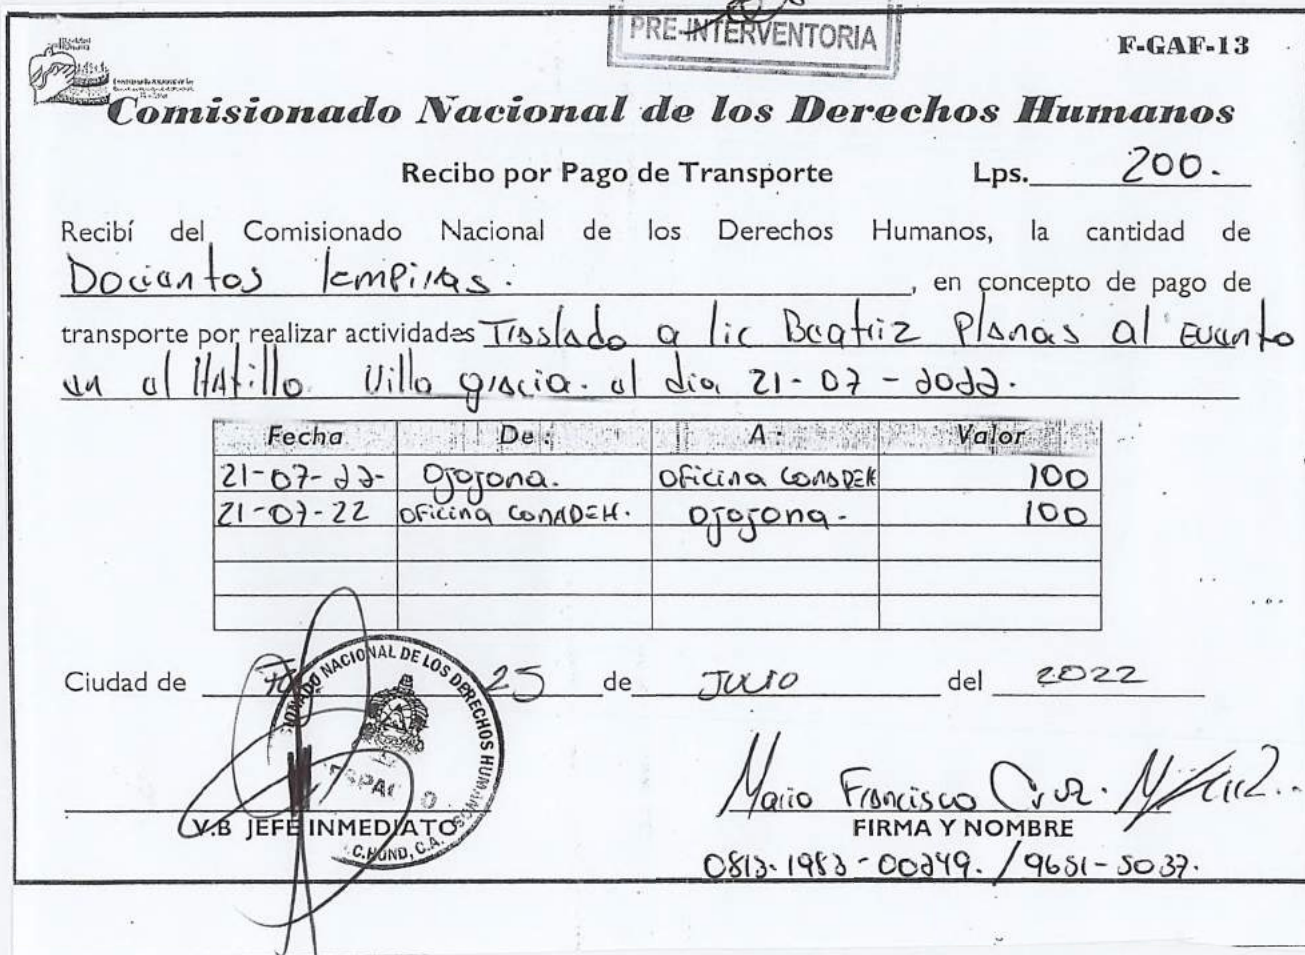 PRE-INTERVENTORIA
F-GAF-13
Comisionado Nacional de los Derechos Humanos
Recibo por Pago de Transporte Lps. 200.
Recibí del Comisionado Nacional de los Derechos Humanos, la cantidad de
Dociantos lempiras. , en concepto de pago de
transporte por realizar actividades Traslado a lic Beatriz Planas al Evento
en el Hatillo. Villa gracia. el dia 21-07-2022.
Fecha De: A: Valor
21-07-22- Ojojona. oficina CONADEH 100
21-07-22 oficina CONADEH. Ojojona. 100
Ciudad de 25 de Julio del 2022
COMISIONADO NACIONAL DE LOS DERECHOS HUMANOS
DESPACHO
C.HOND, C.A.
Mario Francisco Cruz.
V.B JEFE INMEDIATO FIRMA Y NOMBRE
0813-1983-00249. / 9651-5037.